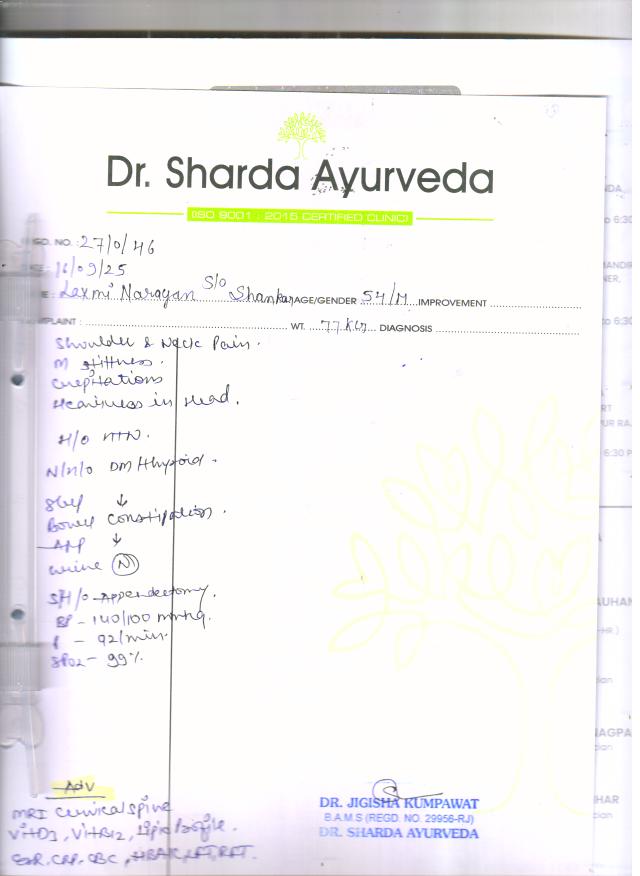 Dr. Sharda Ayurveda
(ISO 9001 : 2015 CERTIFIED CLINIC)
GD. NO. : 27/0/46
: 16/09/25
E : Laxmi Narayan S/o Shankar AGE/GENDER 54/M IMPROVEMENT
MPLAINT : WT. 77 Kg DIAGNOSIS
Shoulder & Neck Pain.
M stiffness.
Crepitations
Heaviness in Head.
H/o HTN.
N/H/o DM Thyroid.
Sleep ↓
Bowel Constipation.
App ↓
Urine N
S/H/o Appendectomy.
BP - 140/100 mmHg.
P - 92/min.
SPO2 - 99%
Adv
MRI Cervical Spine
Vit D3, Vit B12, Lipid Profile.
ESR, CRP, CBC, HBA1C, LFT, RFT.
DR. JIGISHA KUMPAWAT
B.A.M.S (REGD. NO. 29956-RJ)
DR. SHARDA AYURVEDA
NDA
6:30
ANDIR
NER,
to 6:30
RT
UR RAJ
6:30 P
AUHAN
HR.)
ian
NAGPA
cian
HAR
cian